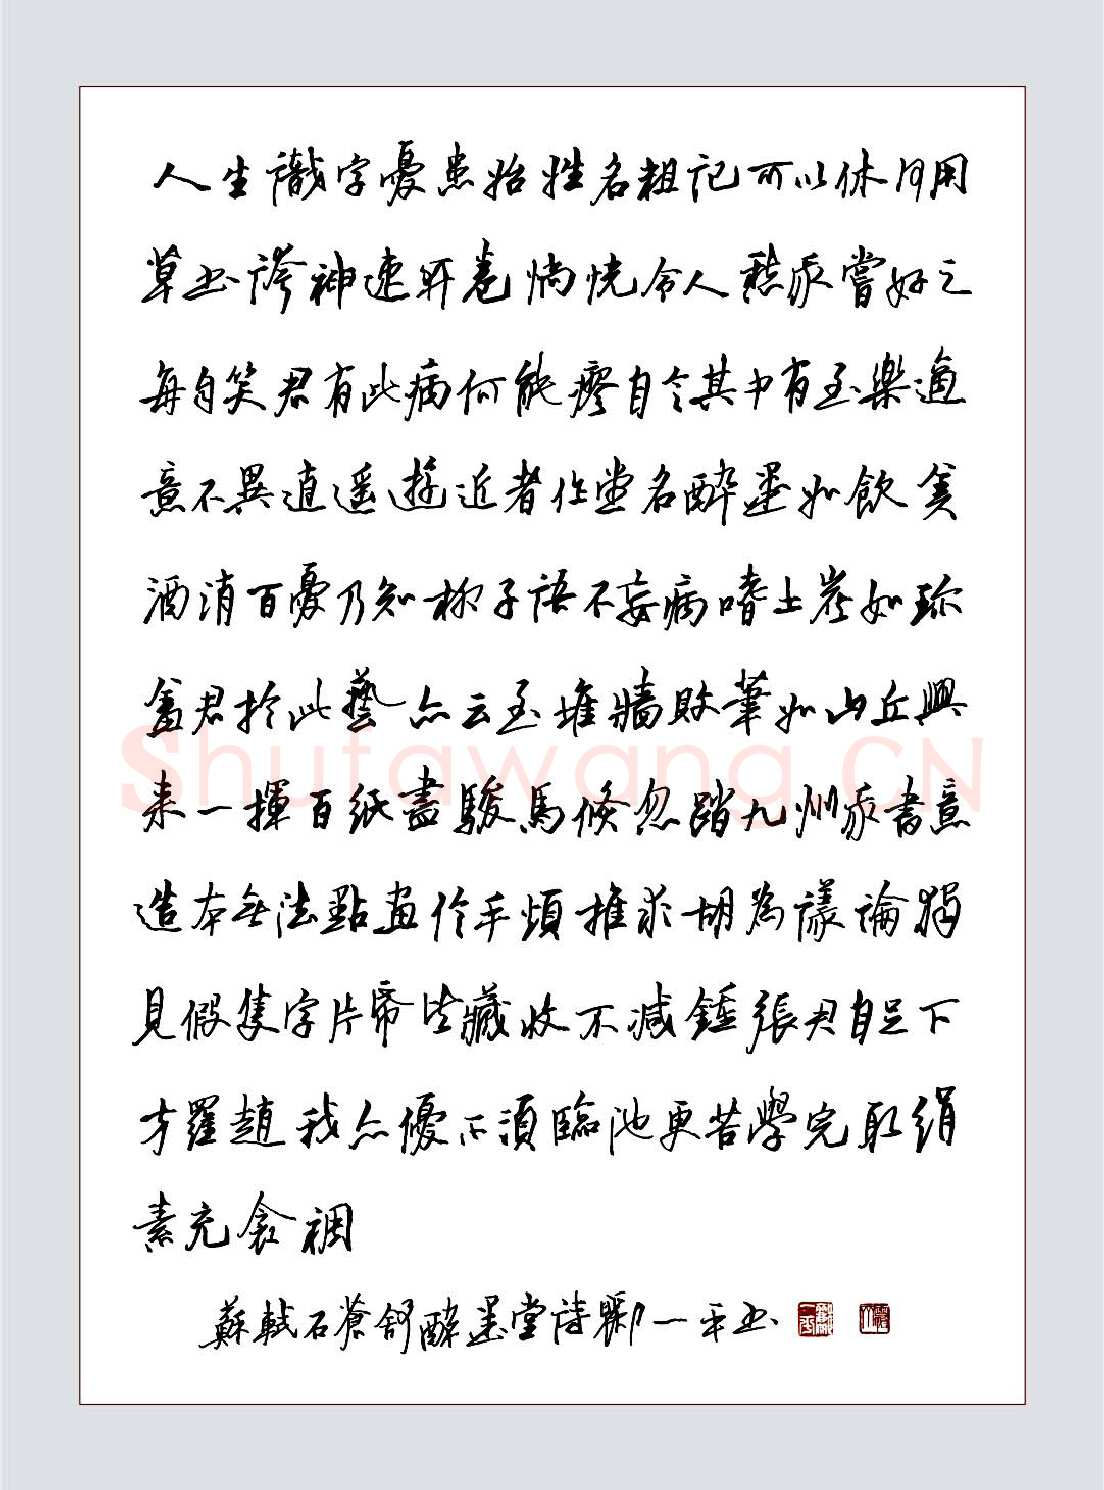 人生識字憂患始姓名粗記可以休何用
草書誇神速開卷惝怳令人愁我嘗好之
每自笑君有此病何能瘳自言其中有至樂適
意不異逍遙遊近者作堂名醉墨如飲美
酒消百憂乃知柳子語不妄病嗜土炭如珍
羞君於此藝亦云至堆牆敗筆如山丘興
來一揮百紙盡駿馬倏忽踏九州我書意
造本無法點畫信手煩推求胡為議論獨
見假隻字片紙皆藏收不減鍾張君自足下
方羅趙我亦優不須臨池更苦學完取絹
素充衾裯
蘇軾石蒼舒醉墨堂詩劉一平書
Shufawang.CN